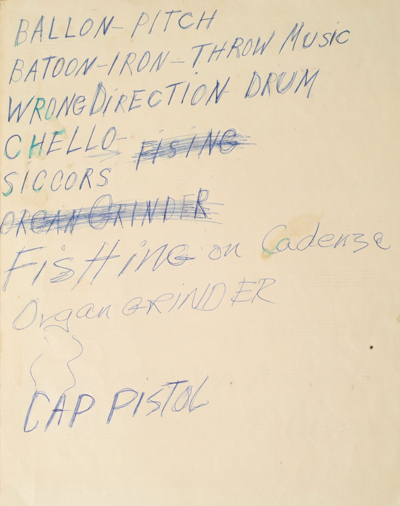 BALLON-PITCH
BATOON-IRON-THROW MUSIC
WRONG DIRECTION DRUM
CHELLO- FISING
SICCORS
ORGAN GRINDER
FisHING on Cadenza
Organ GRINDER
CAP PISTOL